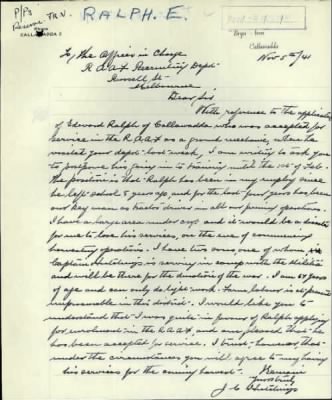 P/P3
Reserve TRN.
RALPH. E.
CALLAWADDA 2
"Brya - Bon
Callawadda
Nov 5th/41
To, The Officer in Charge
R A A F Recruiting Dept
Russell St
Melbourne
Dear Sir
With reference to the application
of Edward Ralph of Callawadda, who was accepted for
service in the R.A.A.F as a ground mechanic, when he
visited your dept last week, I am writing to ask you
to postpone his going in to training until the 1st of Feb.
The position is that Ralph has been in my employ since
he left school 5 years ago and for the last four years has been
our key man as tractor driver in all our farming operations.
I have a large area under crop and it would be a disaster
for me to lose his services, on the eve of commencing
harvesting operations. I have two sons, one of whom is
Captain Hutchings is serving in camp with the Militia
and will be there for the duration of the war. I am 64 years
of age and can only do light work. Farm labour is
unprocurable in this district. I would like you to
understand that I was quite in favour of Ralph applying
for enrolment in the R.A.A.F, and am pleased that he
has been accepted for service. I trust however that
under the circumstances you will agree to my having
his services for the coming harvest.
I Remain
Yours truly
J. C. Hutchings